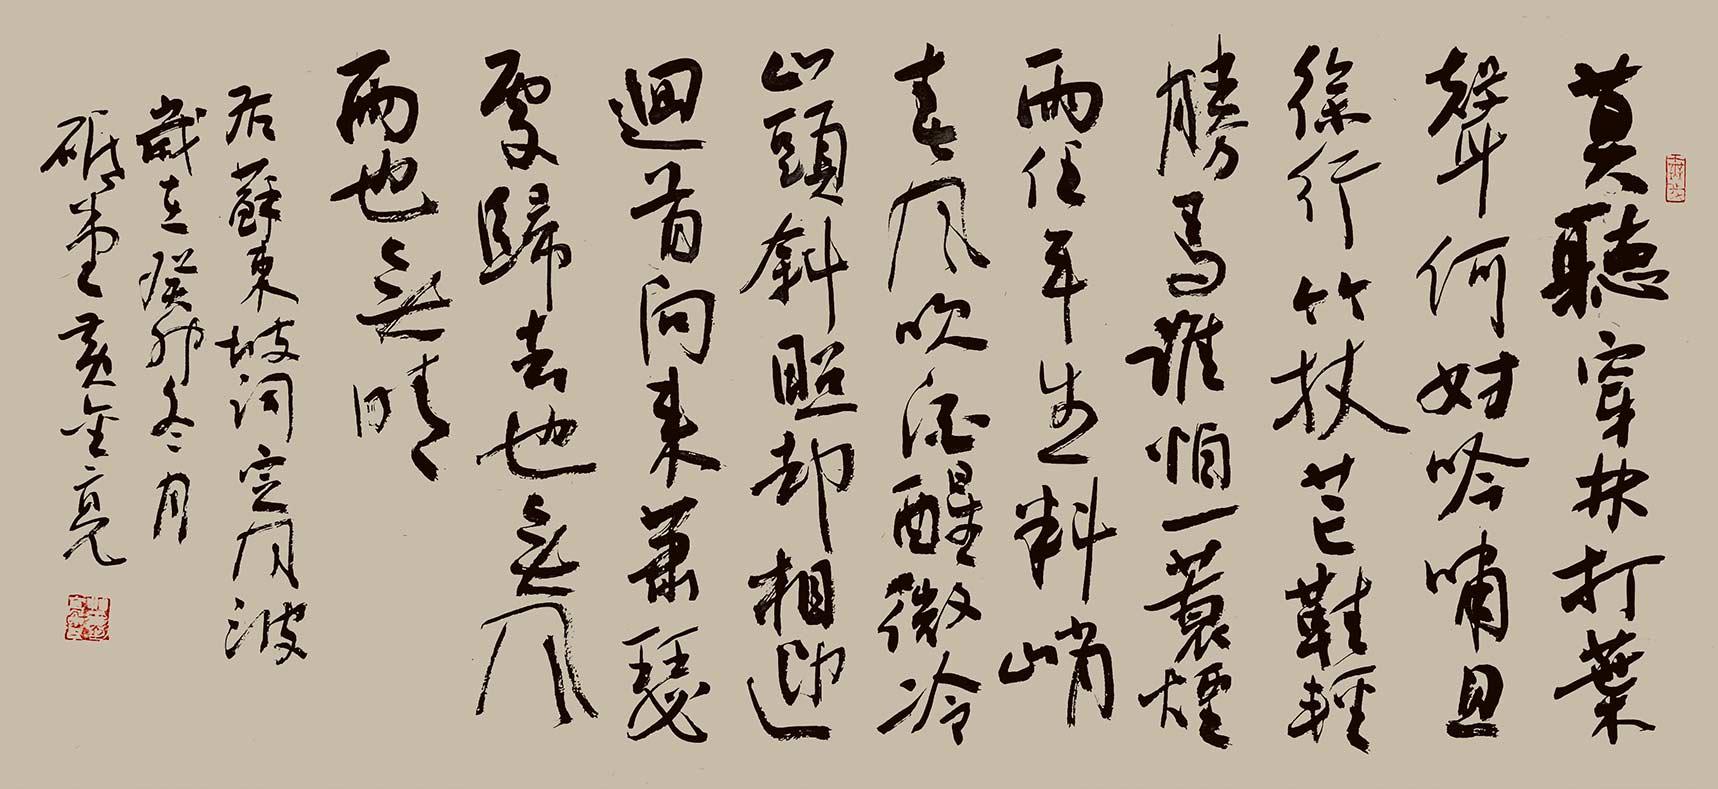 莫聽穿林打葉
聲何妨吟嘯且
徐行竹杖芒鞋輕
勝馬誰怕一蓑煙
雨任平生料峭
春風吹酒醒微冷
山頭斜照却相迎
迴首向來蕭瑟
處歸去也無風
雨也無晴
右蘇東坡詞定風波
歲在癸卯冬月
堂黃金亮